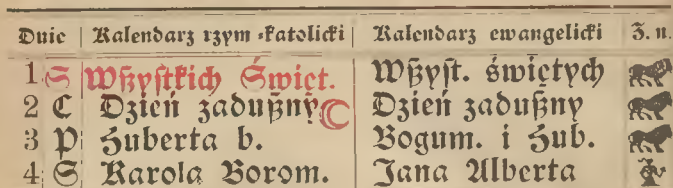 Dnie Kalendarz rzym.-katolicki Kalendarz ewangelicki Z. n.
1 S Wszystkich Świet. Wszyst. świetych
2 C Dzień zaduszny Dzień zaduszny
3 P Huberta b. Bogum. i Hub.
4 S Karola Borom. Jana Alberta